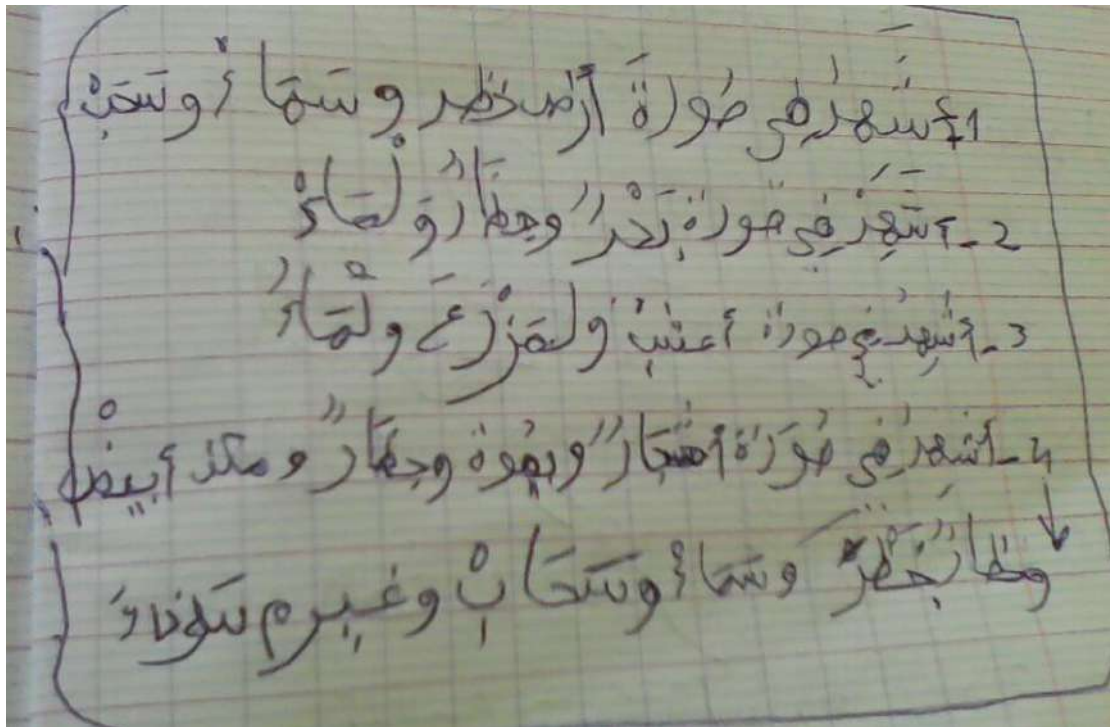 1- أشهد في صورة أرض خظر وسما أ وسحب
2- أشهد في صورة بحر وجظار ولما ئ
3- أشهد في صورة أعشب ولمزرع ولثمار
4- أشهد في صورة أشجار وبيوة وجظار و أبيض
وظا خظر وسما أ وسحاب وغير